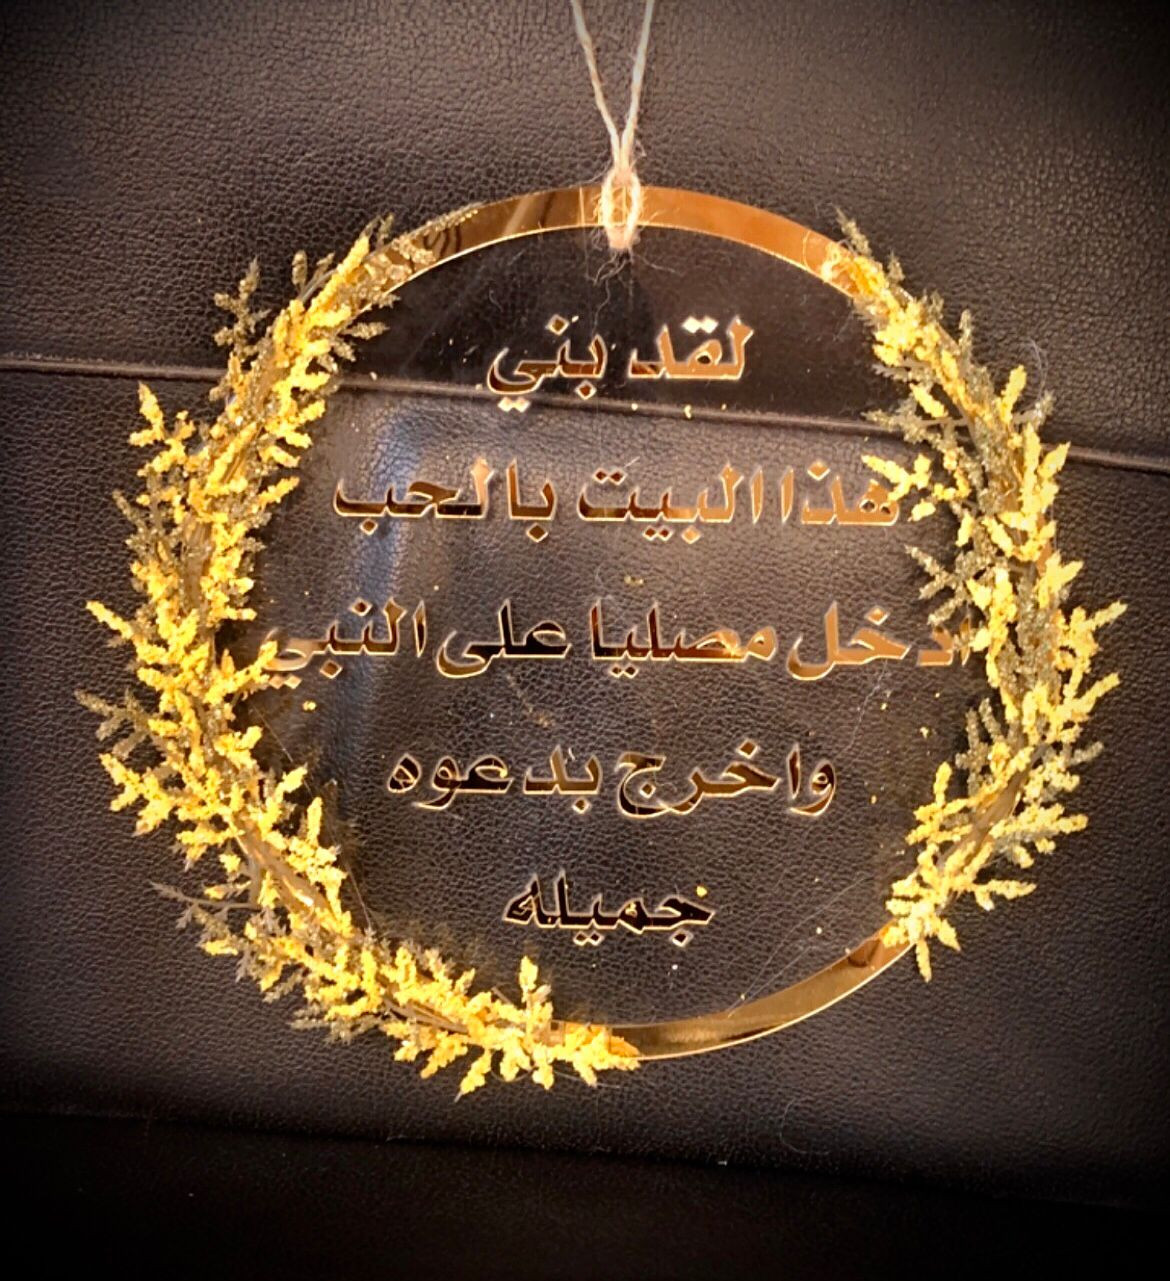 لقد بني
هذا البيت بالحب
ادخل مصليا على النبي
واخرج بدعوه
جميله